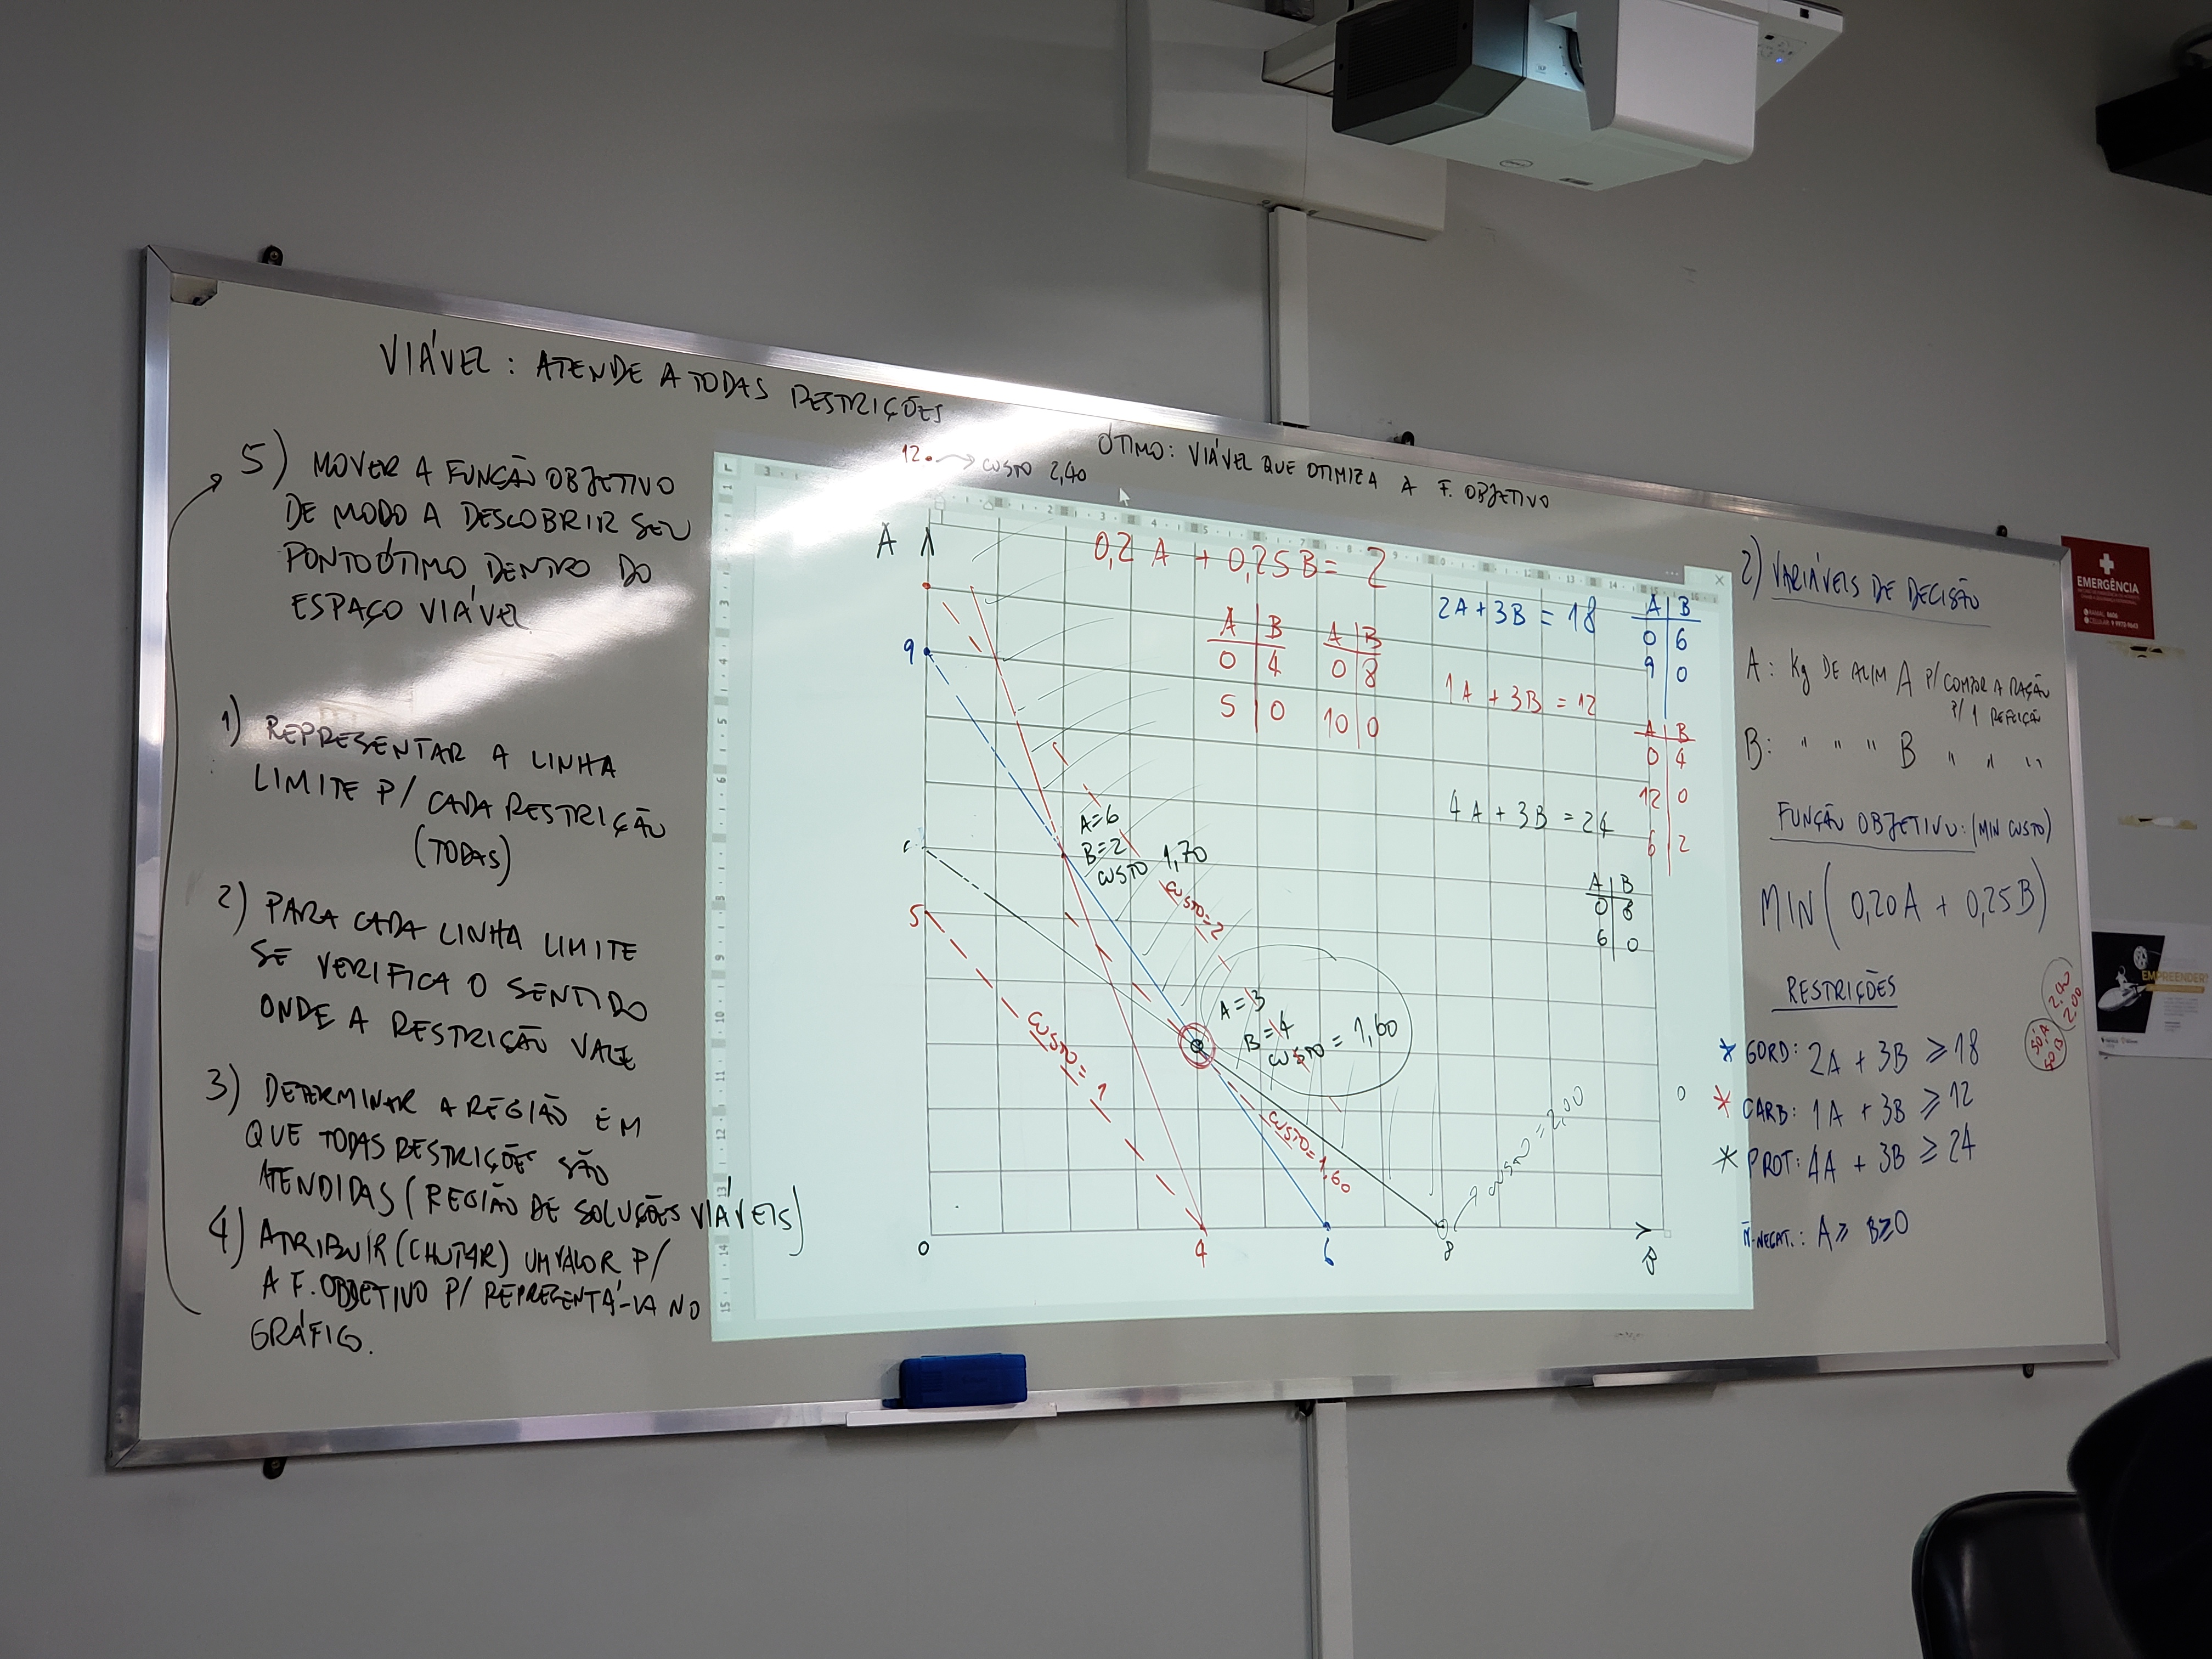 VIÁVEL: ATENDE A TODAS RESTRIÇÕES
ÓTIMO: VIÁVEL QUE OTIMIZA A F. OBJETIVO
5) MOVER A FUNÇÃO OBJETIVO
DE MODO A DESCOBRIR SEU
PONTO ÓTIMO, DENTRO DO
ESPAÇO VIÁVEL
1) REPRESENTAR A LINHA
LIMITE P/ CADA RESTRIÇÃO
(TODAS)
2) PARA CADA LINHA LIMITE
SE VERIFICA O SENTIDO
ONDE A RESTRIÇÃO VALE
3) DETERMINAR A REGIÃO EM
QUE TODAS RESTRIÇÕES SÃO
ATENDIDAS (REGIÃO DE SOLUÇÕES VIÁVEIS)
4) ATRIBUIR (CHUTAR) UM VALOR P/
A F. OBJETIVO P/ REPRESENTÁ-LA NO
GRÁFICO.
12 → CUSTO 2,40
A
0,2 A + 0,25 B = 2
A B
0 4
5 0
A B
0 8
10 0
2A + 3B = 18
A B
0 6
9 0
1A + 3B = 12
A B
0 4
12 0
6 2
4A + 3B = 24
A B
0 8
6 0
9
A=6
B=2
CUSTO 1,70
CUSTO=2
5
A=3
B=4
CUSTO = 1,60
CUSTO=1
CUSTO=1,60
CUSTO=2,00
0
4
6
8
B
2) VARIÁVEIS DE DECISÃO
A: Kg DE ALIM A P/ COMPOR A RAÇÃO
P/ 1 REFEIÇÃO
B: " " " B " " "
FUNÇÃO OBJETIVO: (MIN CUSTO)
MIN ( 0,20A + 0,25B )
RESTRIÇÕES
* GORD: 2A + 3B ≥ 18
* CARB: 1A + 3B ≥ 12
* PROT: 4A + 3B ≥ 24
Ñ-NEGAT.: A ≥ B ≥ 0
SÓ A 2,40
SÓ B 2,00
0
EMERGÊNCIA
EMPREENDER
DELL